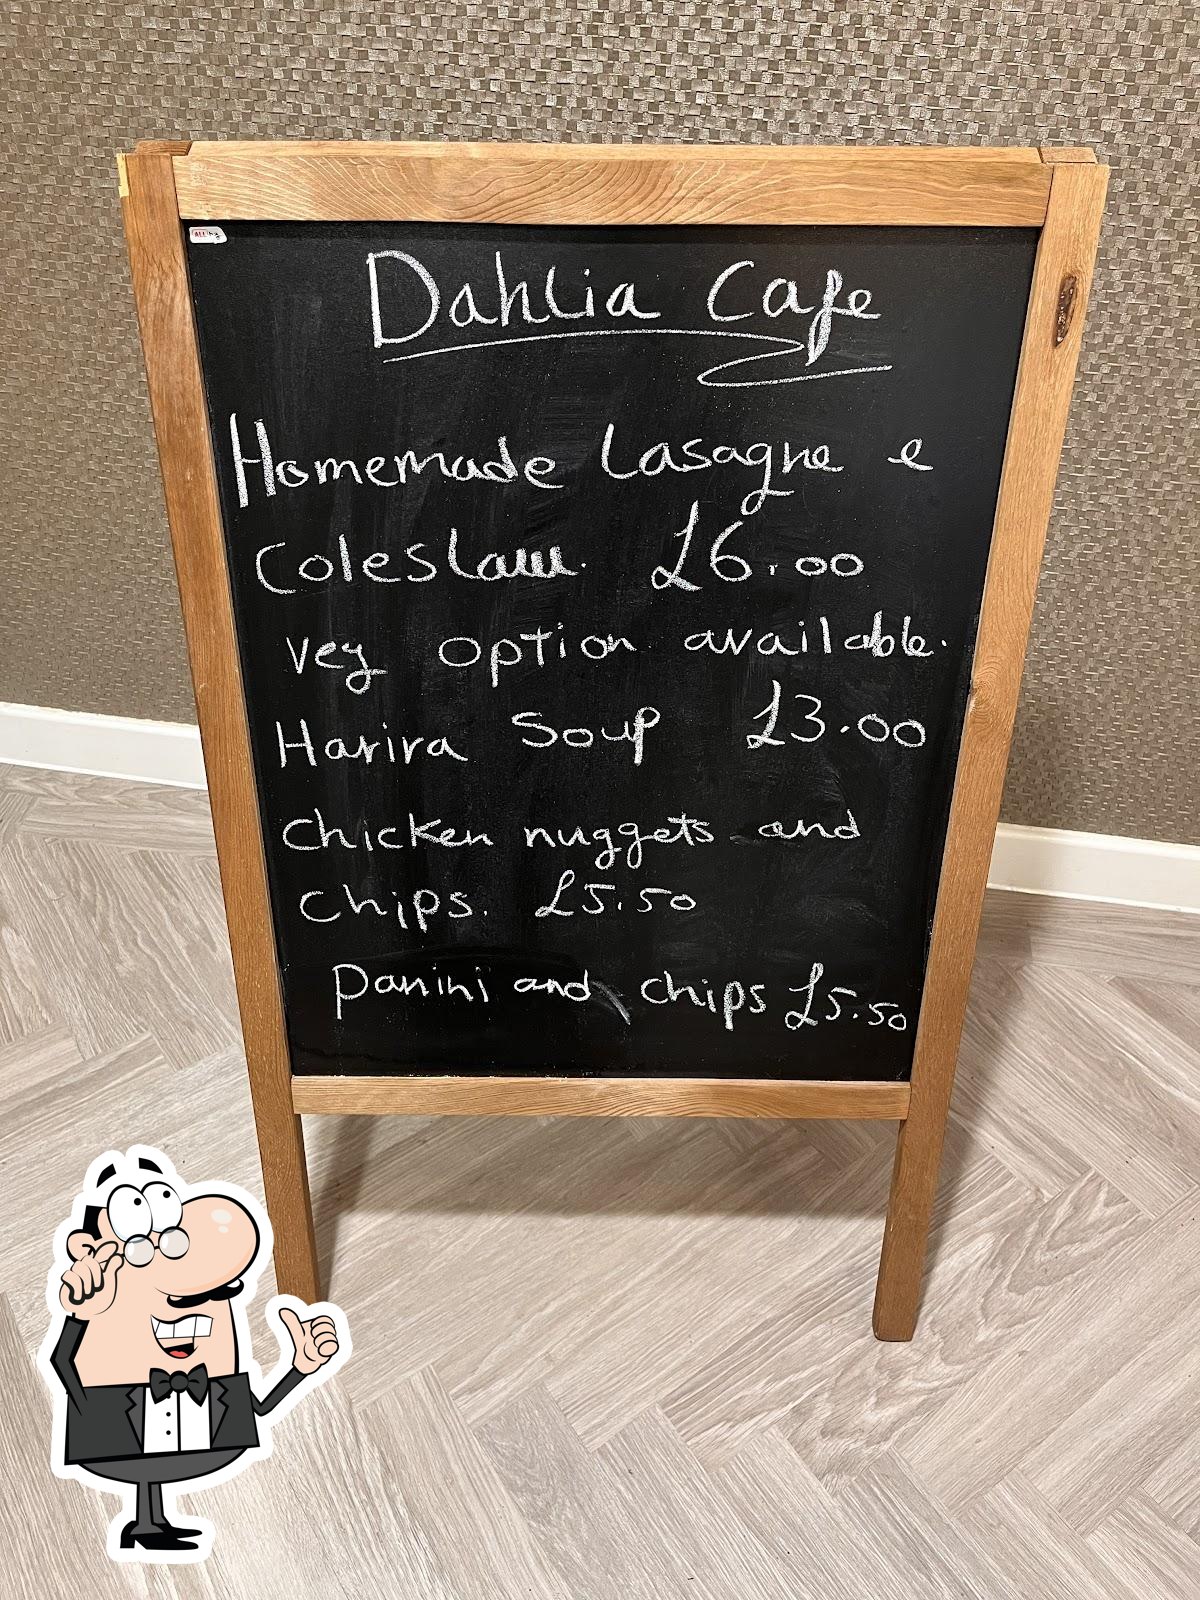 Dahlia Cafe
Homemade Lasagne e
Coleslaw. £6.00
veg option available.
Harira Soup £3.00
Chicken nuggets and
chips. £5.50
Panini and chips £5.50